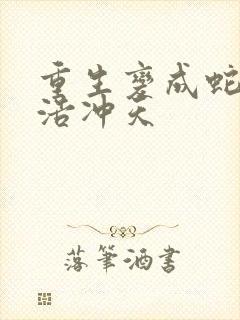 重生变成蛇
活冲天
落筆酒書